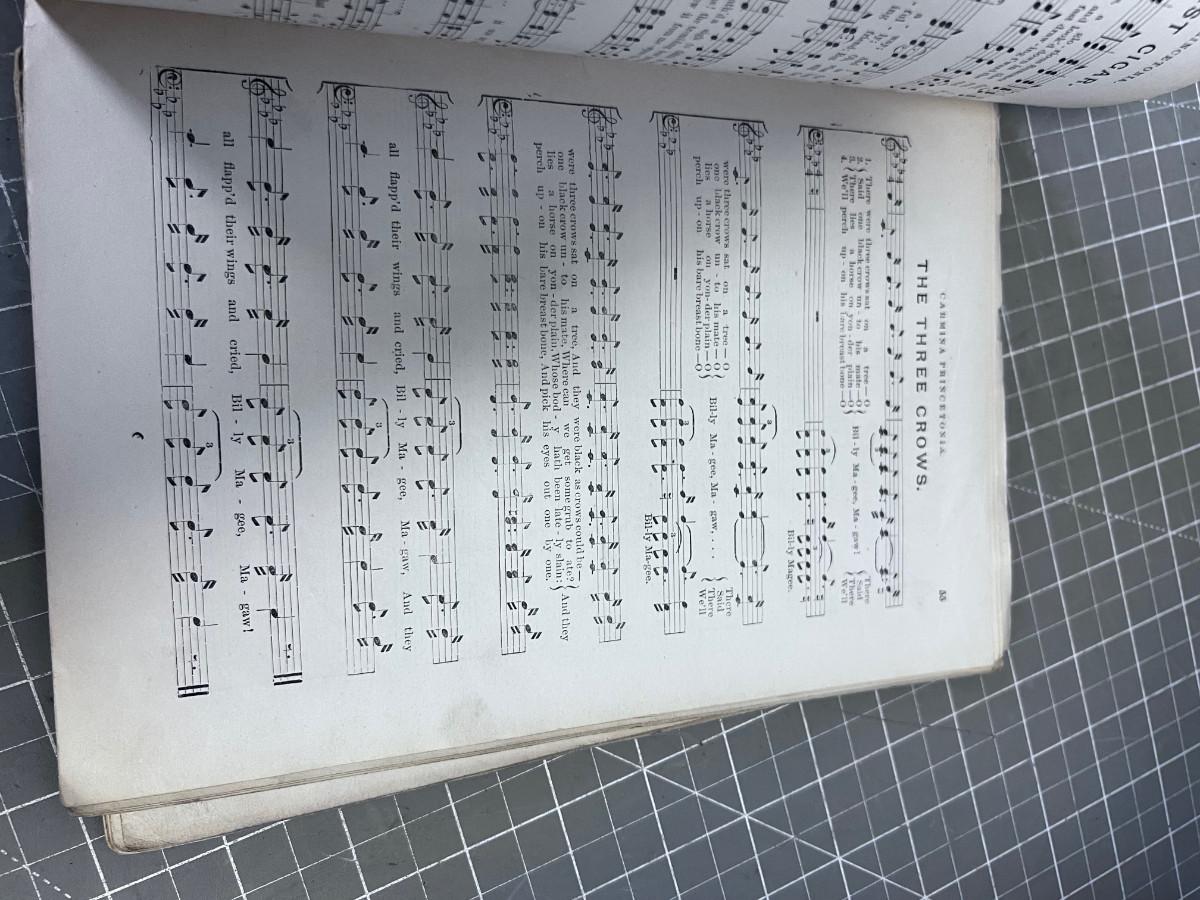 CARMINA PRINCETONIA.
55
THE THREE CROWS.
1. There were three crows sat on a tree—O
2. { Said one black crow un - to his mate—O
3. { There lies a horse on yon - der plain—O
4. We'll perch up - on his bare breast bone—O
Bil - ly Ma - gee, Ma - gaw!
There
Said
There
We'll
Bil-ly Magee.
were three crows sat on a tree—O
one black crow un - to his mate—O
lies a horse on yon- der plain—O
perch up - on his bare breast bone—O
Bil-ly Ma - gee, Ma - gaw, . . . .
There
Said
There
We'll
Bil-ly Ma-gee.
were three crows sat on a tree, And they were black as crows could be—
one black crow un - to his mate, Where can we get some grub to ate?
lies a horse on yon - der plain, Whose bod - y hath been late - ly slain:
perch up - on his bare breast bone, And pick his eyes out one by one.
And they
all flapp'd their wings and cried, Bil - ly Ma - gee, Ma - gaw, And they
all flapp'd their wings and cried, Bil - ly Ma - gee, Ma - gaw!
ST CIGAR.